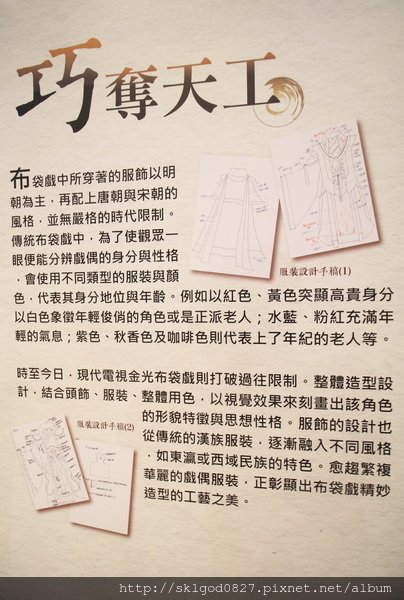 巧奪天工
布袋戲中所穿著的服飾以明
朝為主，再配上唐朝與宋朝的
風格，並無嚴格的時代限制。
傳統布袋戲中，為了使觀眾一
眼便能分辨戲偶的身分與性格
，會使用不同類型的服裝與顏
色，代表其身分地位與年齡。例如以紅色、黃色突顯高貴身分
以白色象徵年輕俊俏的角色或是正派老人；水藍、粉紅充滿年
輕的氣息；紫色、秋香色及咖啡色則代表上了年紀的老人等。
服裝設計手稿(1)
時至今日，現代電視金光布袋戲則打破過往限制。整體造型設
計，結合頭飾、服裝、整體用色，以視覺效果來刻畫出該角色
的形貌特徵與思想性格。服飾的設計也
從傳統的漢族服裝，逐漸融入不同風格
，如東瀛或西域民族的特色。愈趨繁複
華麗的戲偶服裝，正彰顯出布袋戲精妙
造型的工藝之美。
服裝設計手稿(2)
http://sklgod0827.pixnet.net/album